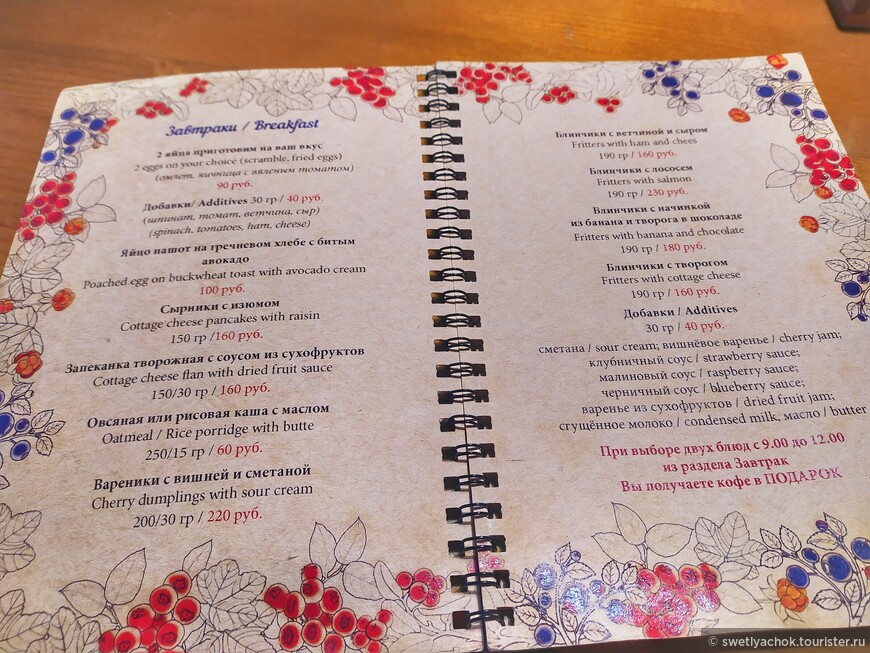 Завтраки / Breakfast
2 яйца приготовим на ваш вкус
2 eggs on your choice (scramble, fried eggs)
(омлет, яичница с вяленым томатом)
90 руб.
Добавки/ Additives 30 гр / 40 руб.
(шпинат, томат, ветчина, сыр)
(spinach, tomatoes, ham, cheese)
Яйцо пашот на гречневом хлебе с битым
авокадо
Poached egg on buckwheat toast with avocado cream
100 руб.
Сырники с изюмом
Cottage cheese pancakes with raisin
150 гр /160 руб.
Запеканка творожная с соусом из сухофруктов
Cottage cheese flan with dried fruit sauce
150/30 гр / 160 руб.
Овсяная или рисовая каша с маслом
Oatmeal / Rice porridge with butte
250/15 гр / 60 руб.
Вареники с вишней и сметаной
Cherry dumplings with sour cream
200/30 гр / 220 руб.
Блинчики с ветчиной и сыром
Fritters with ham and chees
190 гр / 160 руб.
Блинчики с лососем
Fritters with salmon
190 гр / 230 руб.
Блинчики с начинкой
из банана и творога в шоколаде
Fritters with banana and chocolate
190 гр / 180 руб.
Блинчики с творогом
Fritters with cottage cheese
190 гр / 160 руб.
Добавки / Additives
30 гр / 40 руб.
сметана / sour cream; вишнёвое варенье / cherry jam;
клубничный соус / strawberry sauce;
малиновый соус / raspberry sauce;
черничный соус / blueberry sauce;
варенье из сухофруктов / dried fruit jam;
сгущённое молоко / condensed milk, масло / butter
При выборе двух блюд с 9.00 до 12.00
из раздела Завтрак
Вы получаете кофе в ПОДАРОК
© swetlyachok.tourister.ru